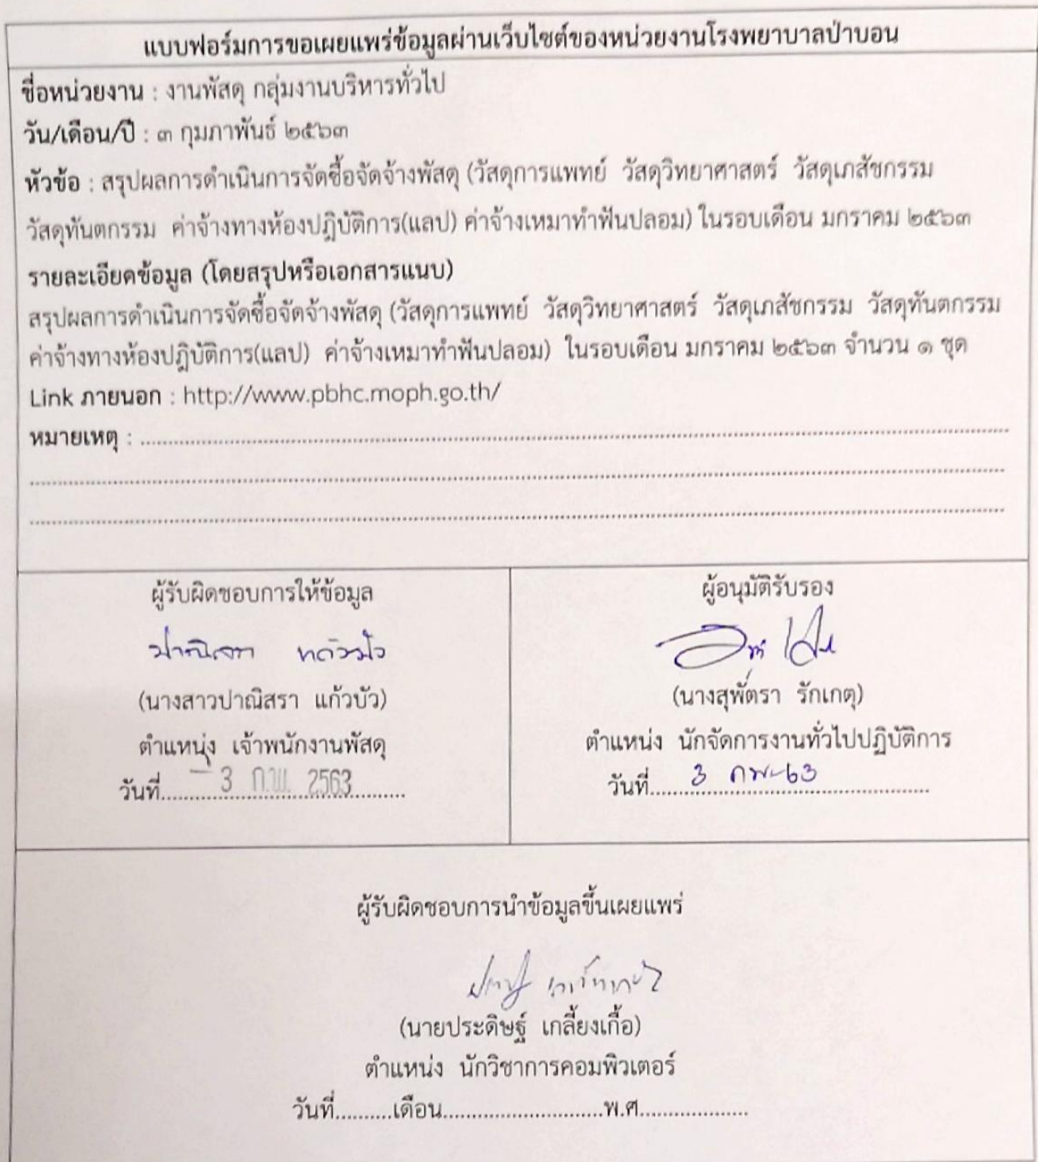 แบบฟอร์มการขอเผยแพร่ข้อมูลผ่านเว็บไซต์ของหน่วยงานโรงพยาบาลป่าบอน
ชื่อหน่วยงาน : งานพัสดุ กลุ่มงานบริหารทั่วไป
วัน/เดือน/ปี : ๓ กุมภาพันธ์ ๒๕๖๓
หัวข้อ : สรุปผลการดำเนินการจัดซื้อจัดจ้างพัสดุ (วัสดุการแพทย์ วัสดุวิทยาศาสตร์ วัสดุเภสัชกรรม
วัสดุทันตกรรม ค่าจ้างทางห้องปฏิบัติการ(แลป) ค่าจ้างเหมาทำฟันปลอม) ในรอบเดือน มกราคม ๒๕๖๓
รายละเอียดข้อมูล (โดยสรุปหรือเอกสารแนบ)
สรุปผลการดำเนินการจัดซื้อจัดจ้างพัสดุ (วัสดุการแพทย์ วัสดุวิทยาศาสตร์ วัสดุเภสัชกรรม วัสดุทันตกรรม
ค่าจ้างทางห้องปฏิบัติการ(แลป) ค่าจ้างเหมาทำฟันปลอม) ในรอบเดือน มกราคม ๒๕๖๓ จำนวน ๑ ชุด
Link ภายนอก : http://www.pbhc.moph.go.th/
หมายเหตุ :
ผู้รับผิดชอบการให้ข้อมูล
ปาณิสรา แก้วบัว
(นางสาวปาณิสรา แก้วบัว)
ตำแหน่ง เจ้าพนักงานพัสดุ
วันที่ - 3 ก.พ. 2563
ผู้อนุมัติรับรอง
(นางสุพัตรา รักเกตุ)
ตำแหน่ง นักจัดการงานทั่วไปปฏิบัติการ
วันที่ 3 กพ 63
ผู้รับผิดชอบการนำข้อมูลขึ้นเผยแพร่
(นายประดิษฐ์ เกลี้ยงเกื้อ)
ตำแหน่ง นักวิชาการคอมพิวเตอร์
วันที่..........เดือน............................พ.ศ...................